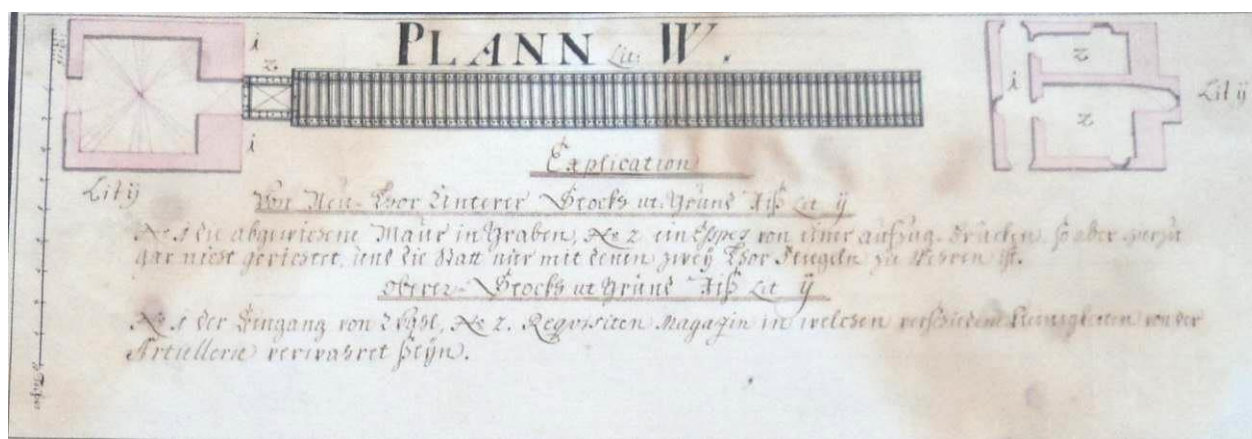 PLANN Lit: W.
i
2
i
Lit ÿ
i
2
2
Lit ÿ
Explication
Von Neü-Thor Unterer Stocks ut Gründ Riß Lit ÿ
No 1 die abgewichene Maür in Graben, No 2 ein von einer aufzug-brücken, so aber
gar nicht gerichtet, und die Statt nür mit denen zweÿ Thor Flügeln zu sperren ist.
Oberer-Stocks ut Gründ Riß Lit ÿ
No 1 der Eingang von No 2. Requisiten Magazin in welchen verschiedene Kleinigkeiten von der
Artillerie verwahret seÿn.